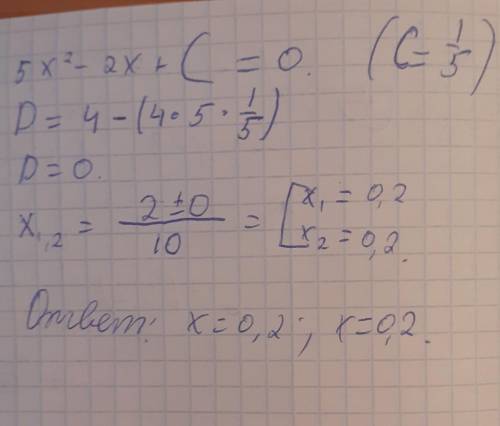 5x² - 2x + C = 0. (C = 1/5)
D = 4 - (4 · 5 · 1/5)
D = 0.
x₁,₂ = (2 ± 0)/10 = [x₁ = 0,2
x₂ = 0,2.
Ответ: x = 0,2; x = 0,2.